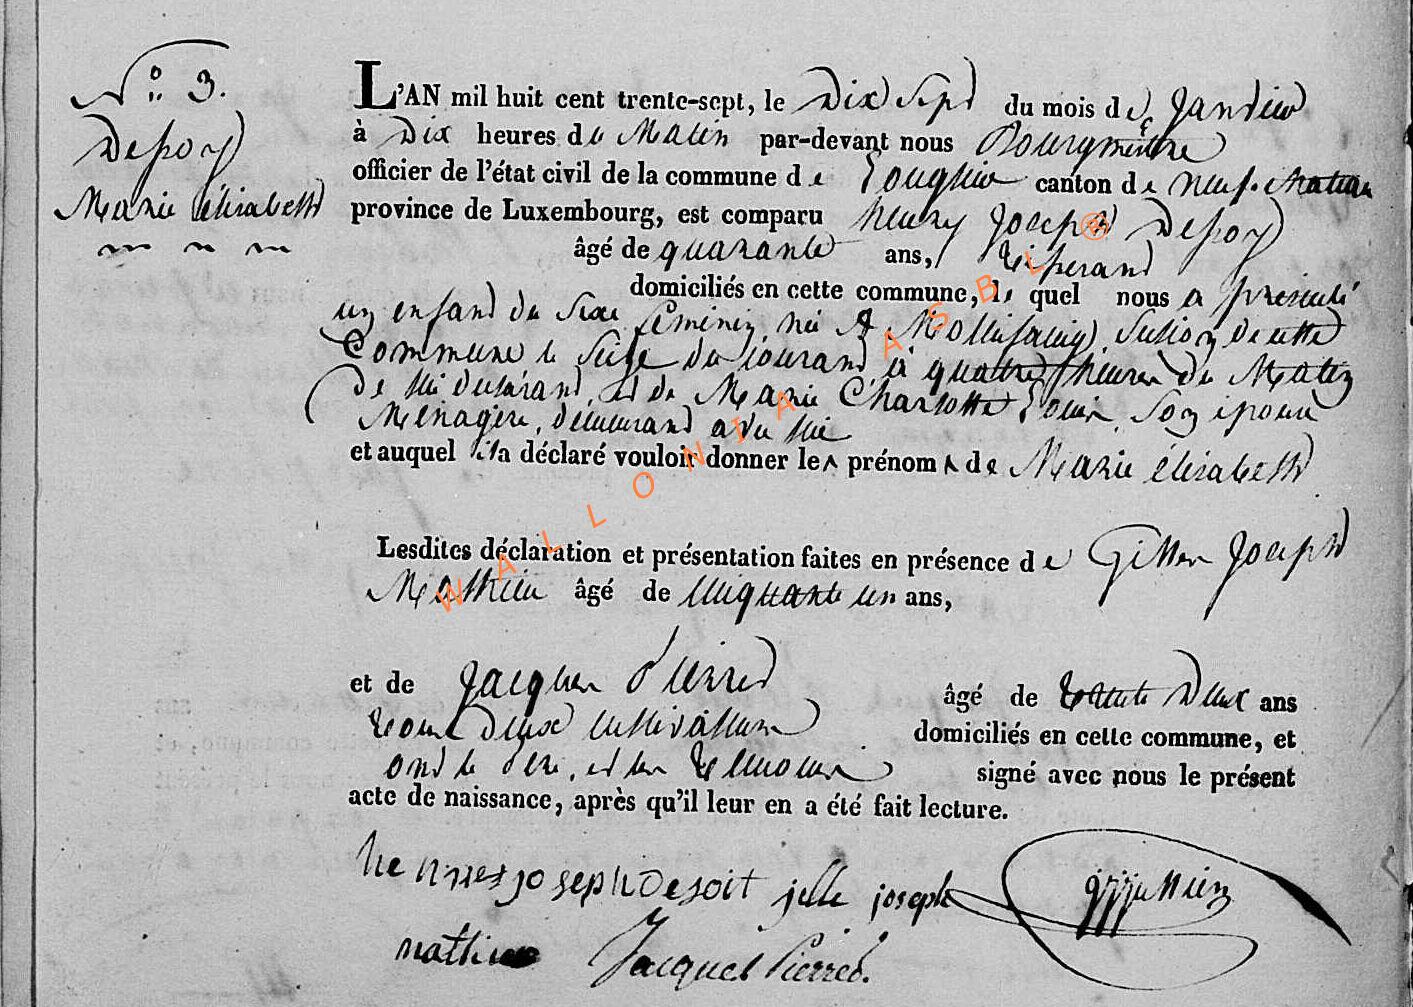 N° 3.
Depoy
Marie élisabeth
L'AN mil huit cent trente-sept, le Dix Sept du mois de Janvier
à Dix heures du Matin par-devant nous Bourgmestre
officier de l'état civil de la commune de canton de neuf-chateau
province de Luxembourg, est comparu henry Joseph Depoy
âgé de quarante ans,
domiciliés en cette commune, le quel nous a présenté
un enfant du Sexe feminin né A Section de cette
Commune le Seize du courant à quatre heures du Matin
de lui déclarant, et de Marie Charlotte Son épouse
Ménagère, demeurant avec lui
et auquel il a déclaré vouloir donner les prénoms de Marie élisabeth
Lesdites déclaration et présentation faites en présence de Joseph
Mathieu âgé de cinquante un ans,
et de Jacques Pierred âgé de trente Deux ans
tous Deux cultivateurs domiciliés en cette commune, et
ont le père, et les témoins signé avec nous le présent
acte de naissance, après qu'il leur en a été fait lecture.
joseph Depoit jille joseph
mathieu Jacques Pierred.
WALLONIA ASBL ®